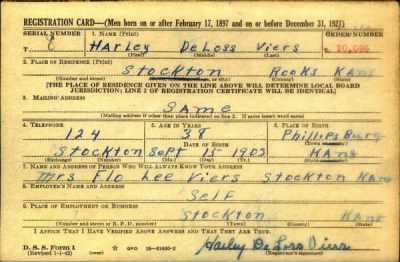 REGISTRATION CARD—(Men born on or after February 17, 1897 and on or before December 31, 1921)
SERIAL NUMBER 1. NAME (Print) ORDER NUMBER
Harley DeLoss Viers T 10,096
(First) (Middle) (Last)
2. PLACE OF RESIDENCE (Print)
Stockton Rooks Kans
(Number and street) (Town, township, village, or city) (County) (State)
[THE PLACE OF RESIDENCE GIVEN ON THE LINE ABOVE WILL DETERMINE LOCAL BOARD
JURISDICTION; LINE 2 OF REGISTRATION CERTIFICATE WILL BE IDENTICAL]
3. MAILING ADDRESS
Same
[Mailing address if other than place indicated on line 2. If same insert word same]
4. TELEPHONE 5. AGE IN YEARS 6. PLACE OF BIRTH
124 38 Phillipsburg
DATE OF BIRTH (Town or county)
Stockton Sept 15 1903 Kans
(Exchange) (Number) (Mo.) (Day) (Yr.) (State or country)
7. NAME AND ADDRESS OF PERSON WHO WILL ALWAYS KNOW YOUR ADDRESS
Mrs Flo Lee Viers Stockton Kans
8. EMPLOYER'S NAME AND ADDRESS
Self
9. PLACE OF EMPLOYMENT OR BUSINESS
Stockton Kans
(Number and street or R. F. D. number) (Town) (County) (State)
I AFFIRM THAT I HAVE VERIFIED ABOVE ANSWERS AND THAT THEY ARE TRUE.
D. S. S. Form 1
(Revised 1-1-42) GPO Harley DeLoss Viers
(Registrant's signature)